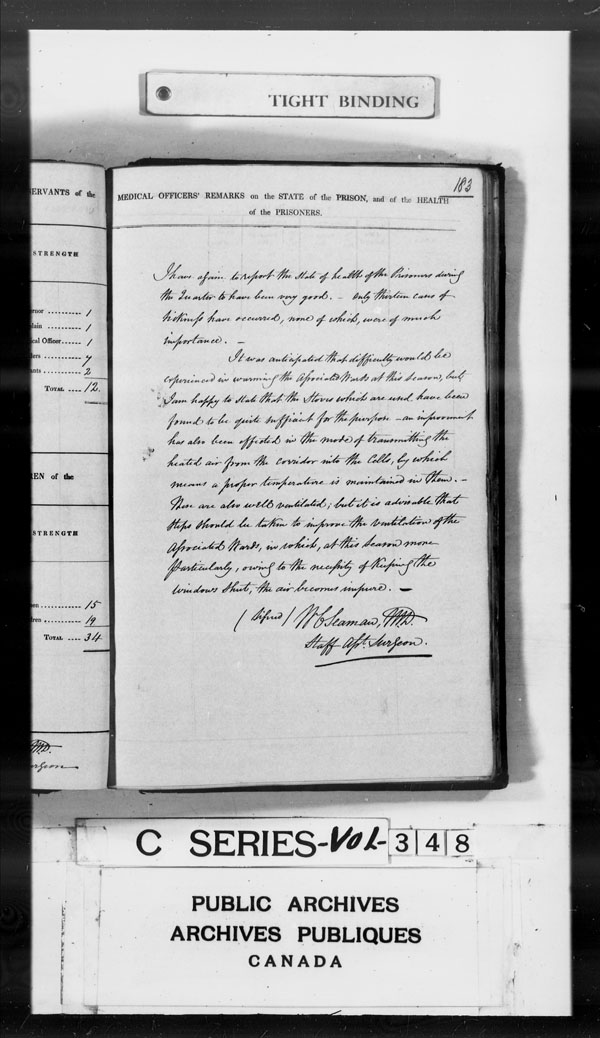 TIGHT BINDING
ERVANTS of the
STRENGTH
rnor .......... 1
lain .......... 1
cal Officer ..... 1
ders .......... 7
ants .......... 2
TOTAL .... 12.
EN of the
STRENGTH
en ............ 15
dren .......... 19
TOTAL .... 34
M.D.
urgeon
183
MEDICAL OFFICERS' REMARKS on the STATE of the PRISON, and of the HEALTH
of the PRISONERS.
I have again to report the state of health of the Prisoners during
the Quarter to have been very good. – Only thirteen cases of
Sickness have occurred, none of which, were of much
importance. –
It was anticipated that difficulty would be
experienced in warming the Associated Wards at this season, but
I am happy to state that the Stoves which are used have been
found to be quite sufficient for the purpose – an improvement
has also been effected in the mode of transmitting the
heated air from the corridor into the Cells, by which
means a proper temperature is maintained in them. –
These are also well ventilated; but it is advisable that
steps should be taken to improve the ventilation of the
Associated Wards, in which, at this season more
particularly, owing to the necessity of keeping the
windows shut, the air becomes impure. –
(Signed) W C Seaman, M.D.
Staff Asst. Surgeon.
C SERIES-VOL-348
PUBLIC ARCHIVES
ARCHIVES PUBLIQUES
CANADA